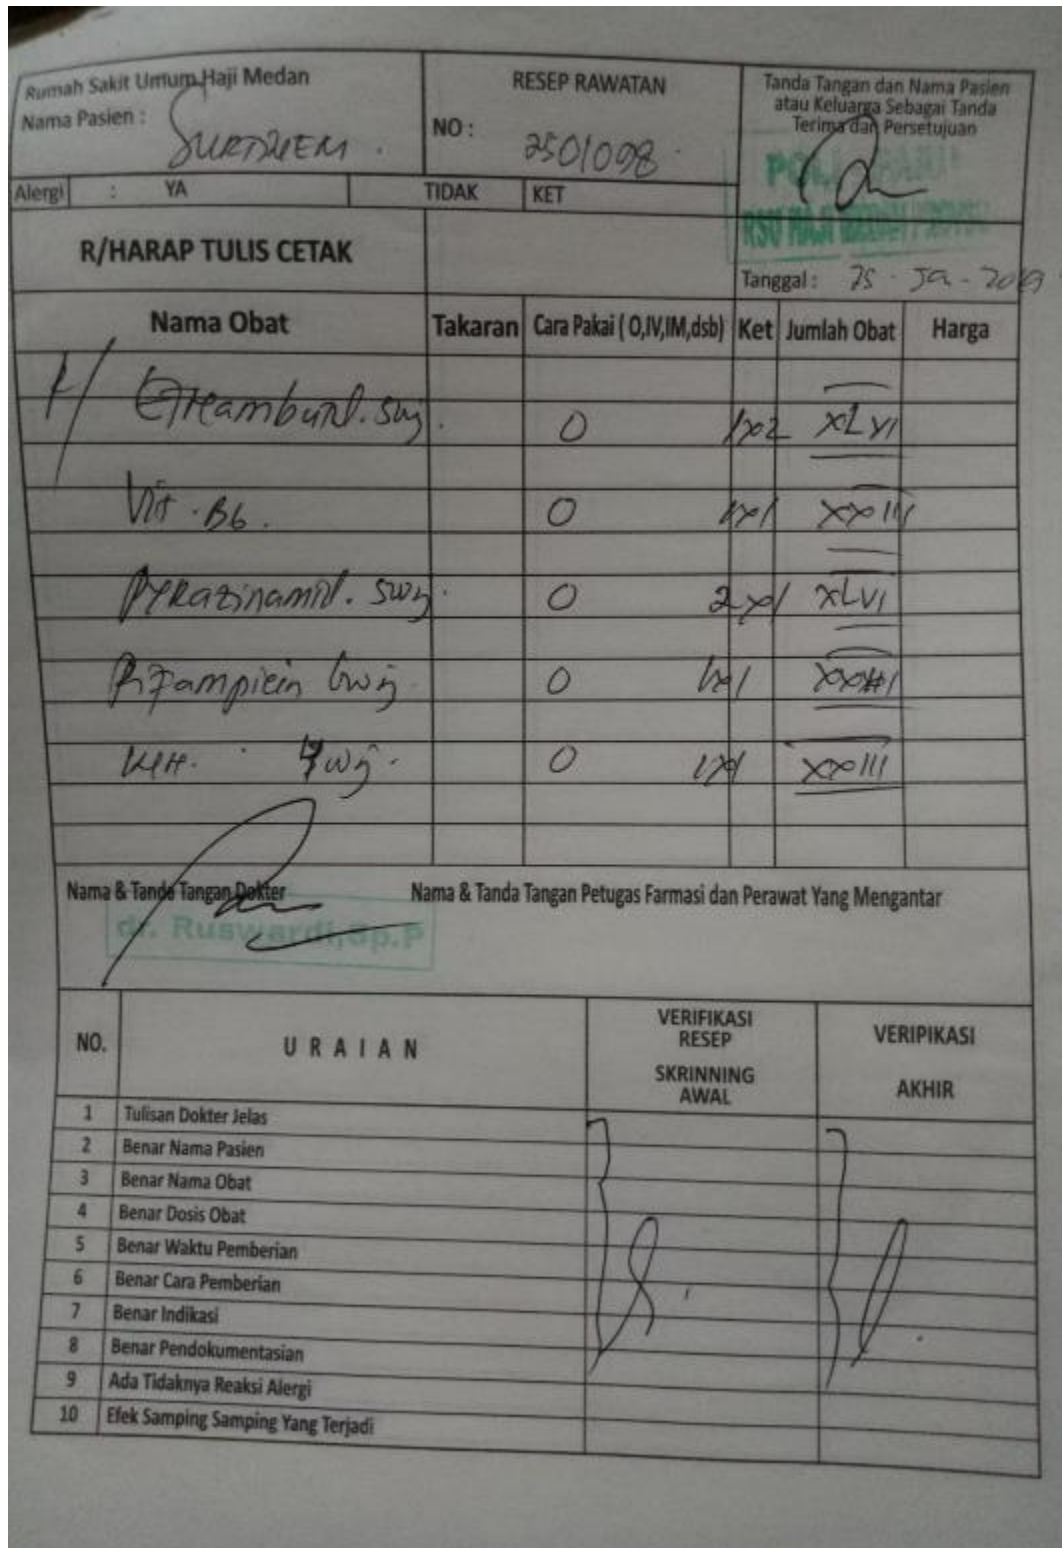 Rumah Sakit Umum Haji Medan
Nama Pasien :
RESEP RAWATAN
NO : 2501098
Tanda Tangan dan Nama Pasien
atau Keluarga Sebagai Tanda
Terima dan Persetujuan
Alergi : YA TIDAK KET
R/HARAP TULIS CETAK
Tanggal : 25
Nama Obat Takaran Cara Pakai ( O,IV,IM,dsb) Ket Jumlah Obat Harga
O 1x2 XLVI
Vit. B6. O 1x1 XXIII
O 2x1 XLVI
O 1x1
O 1x1 XXIII
Nama & Tanda Tangan Dokter Nama & Tanda Tangan Petugas Farmasi dan Perawat Yang Mengantar
dr. Ruswardi,Sp.P
NO. URAIAN VERIFIKASI
RESEP
SKRINNING
AWAL
VERIPIKASI
AKHIR
1 Tulisan Dokter Jelas
2 Benar Nama Pasien
3 Benar Nama Obat
4 Benar Dosis Obat
5 Benar Waktu Pemberian
6 Benar Cara Pemberian
7 Benar Indikasi
8 Benar Pendokumentasian
9 Ada Tidaknya Reaksi Alergi
10 Efek Samping Samping Yang Terjadi